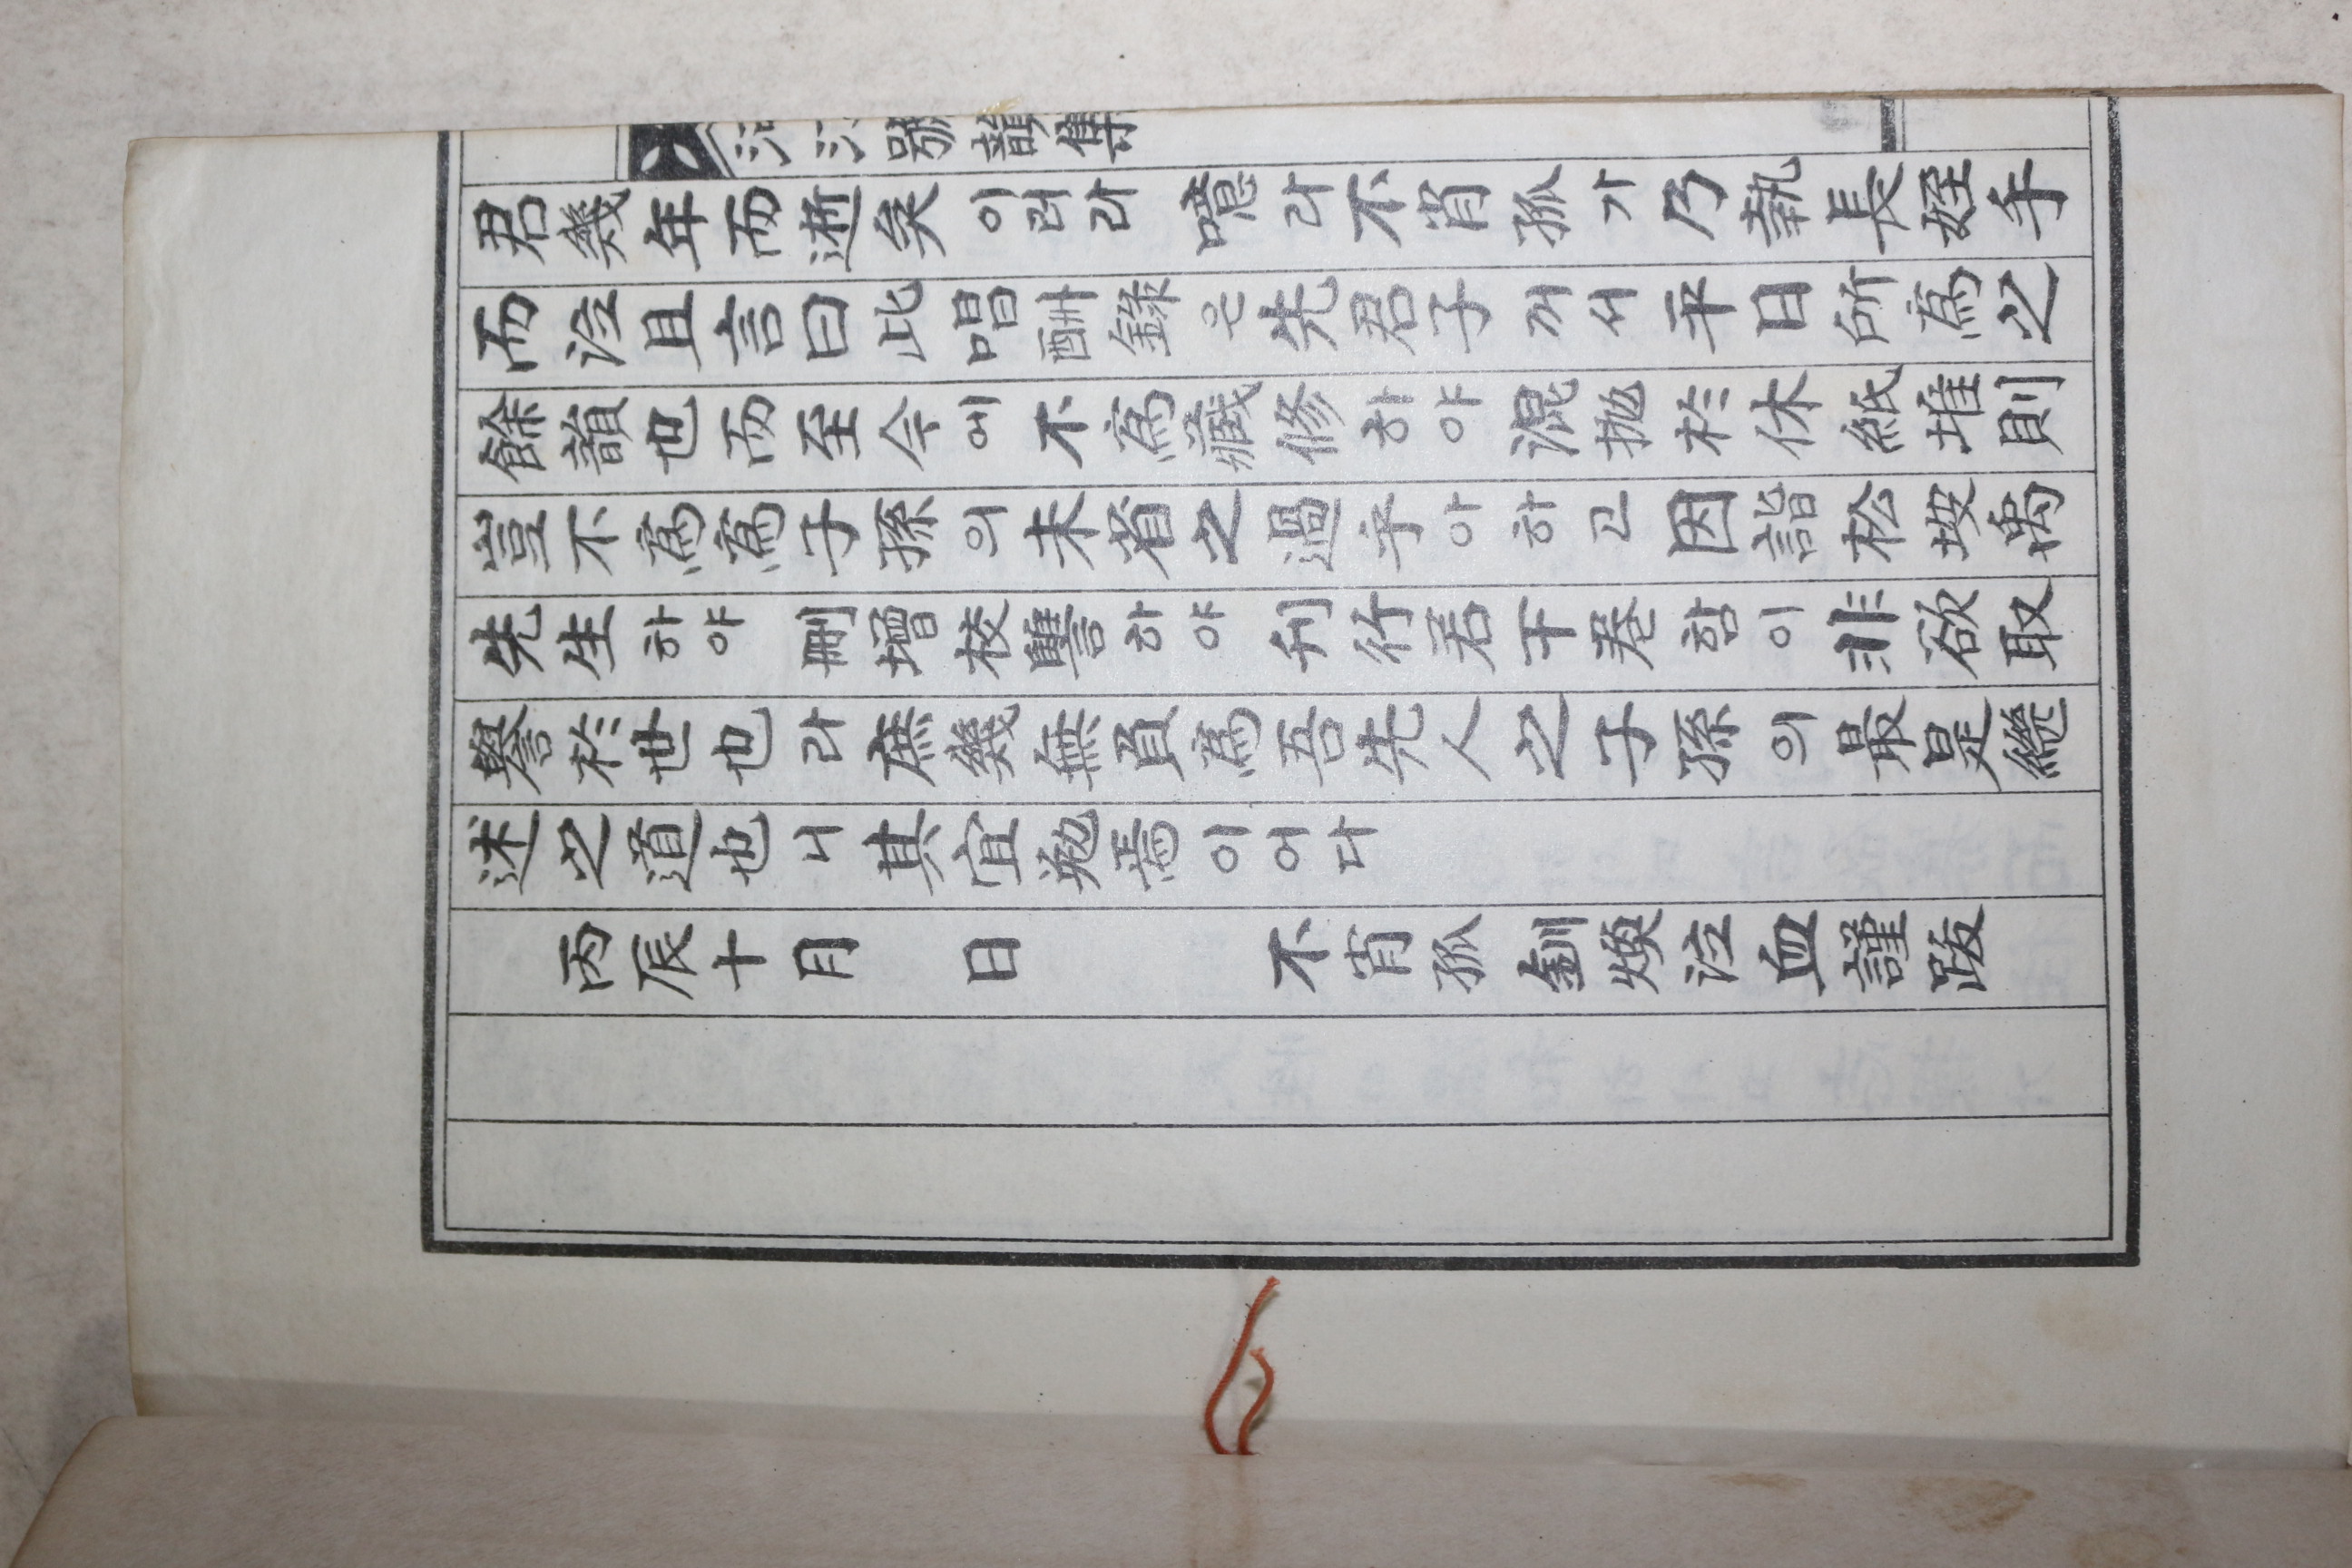 號韻集
君幾年而逝矣이러라噫라不肖孤가乃執長姪手
而泣且言曰此唱酬錄은先君子꺼서平日所爲之
餘韻也而至今에不爲藏修하야混抛於休紙堆則
豈不爲爲子孫의未省之過乎아하고因詣松坡禹
先生하야刪增校讐하야刊行若干卷함이非欲取
譽於世也라庶幾無負爲吾先人之子孫의最是繼
述之道也니其宜勉焉이어다
丙辰十月 日 不肖孤釧煥泣血謹跋